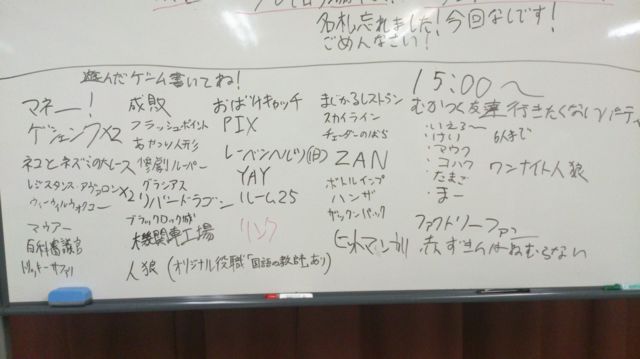 名札忘れました!今回なしです!
ごめんなさい!
遊んだゲーム書いてね!
マネー!
ゲシェンクX2
ネコとネズミの大レース
レジスタンス・アヴァロンX2
ウィーウィルウォクユー
マウアー
百科審議官
トリッキーサファリ
成敗
フラッシュポイント
あやつり人形
惨劇ルーパー
グラシアス
リバードラゴン
ブラックロック城
機関車工場
人狼(オリジナル役職「国語の教師」あり)
おばけキャッチ
PIX
レーベンヘルツ(旧)
YAY
ルーム25
リンク
まじかるレストラン
スカイライン
チェダーのしろ
ZAN
ボトルインプ
ハンザ
ヤックンパック
15:00~
むかつく友達行きたくないパーティ
・いえろ~
・けい
・マウク
・コハク
・たまご
・まー
6人まで
ワンナイト人狼
ファクトリーファン
赤ずきんはねむらない